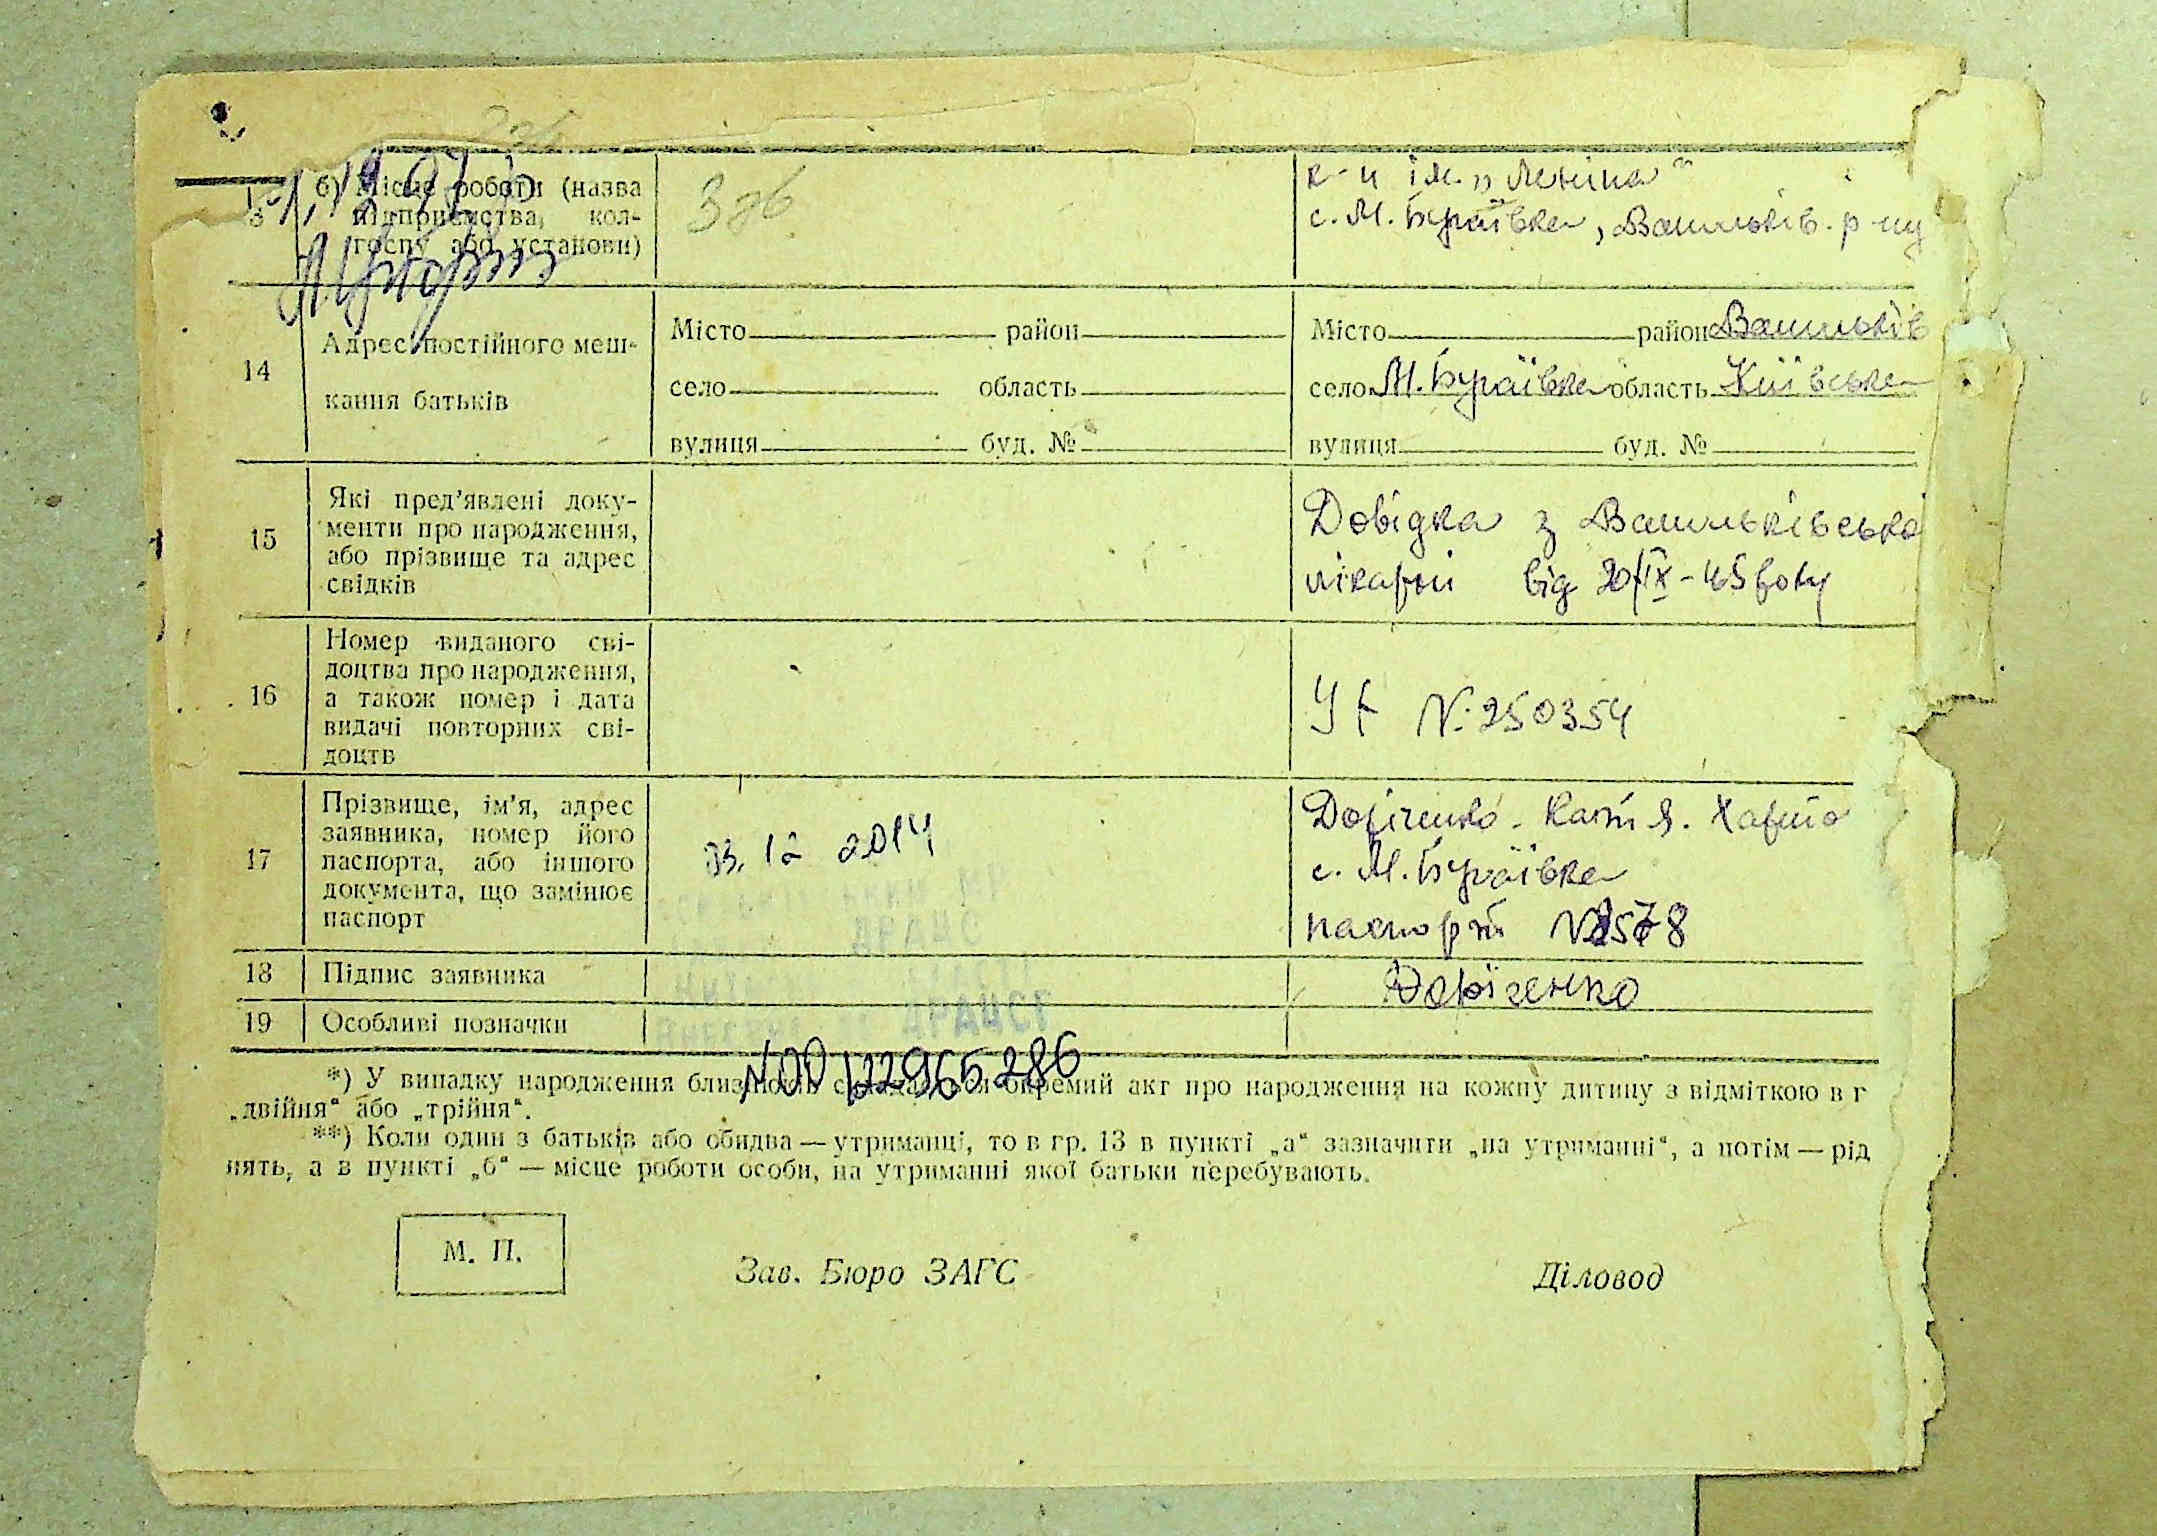 13 б) Місце роботи (назва
підприємства, кол-
госпу або установи)
к-п ім. „Леніна“
с. М. Бугаївка, Васильків. р-ну
14 Адрес постійного меш-
кання батьків
Місто район
село область
вулиця буд. №
Місто район Васильків
село М. Бугаївка область Київська
вулиця буд. №
15 Які пред’явлені доку-
менти про народження,
або прізвище та адрес
свідків
Довідка з Васильківсько
лікарні від 20/IX-45 року
16 Номер виданого сві-
доцтва про народження,
а також номер і дата
видачі повторних сві-
доцтв
N: 250354
17 Прізвище, ім’я, адрес
заявника, номер його
паспорта, або іншого
документа, що замінює
паспорт
12 2014
с. М. Бугаївка
паспорт
18 Підпис заявника
19 Особливі позначки
00122965286
*) У випадку народження близнюків складається окремий акт про народження на кожну дитину з відміткою в г
„двійня“ або „трійня“.
**) Коли один з батьків або обидва — утриманці, то в гр. 13 в пункті „а“ зазначити „на утриманні“, а потім — рід
нять, а в пункті „б“ — місце роботи особи, на утриманні якої батьки перебувають.
М. П.
Зав. Бюро ЗАГС
Діловод